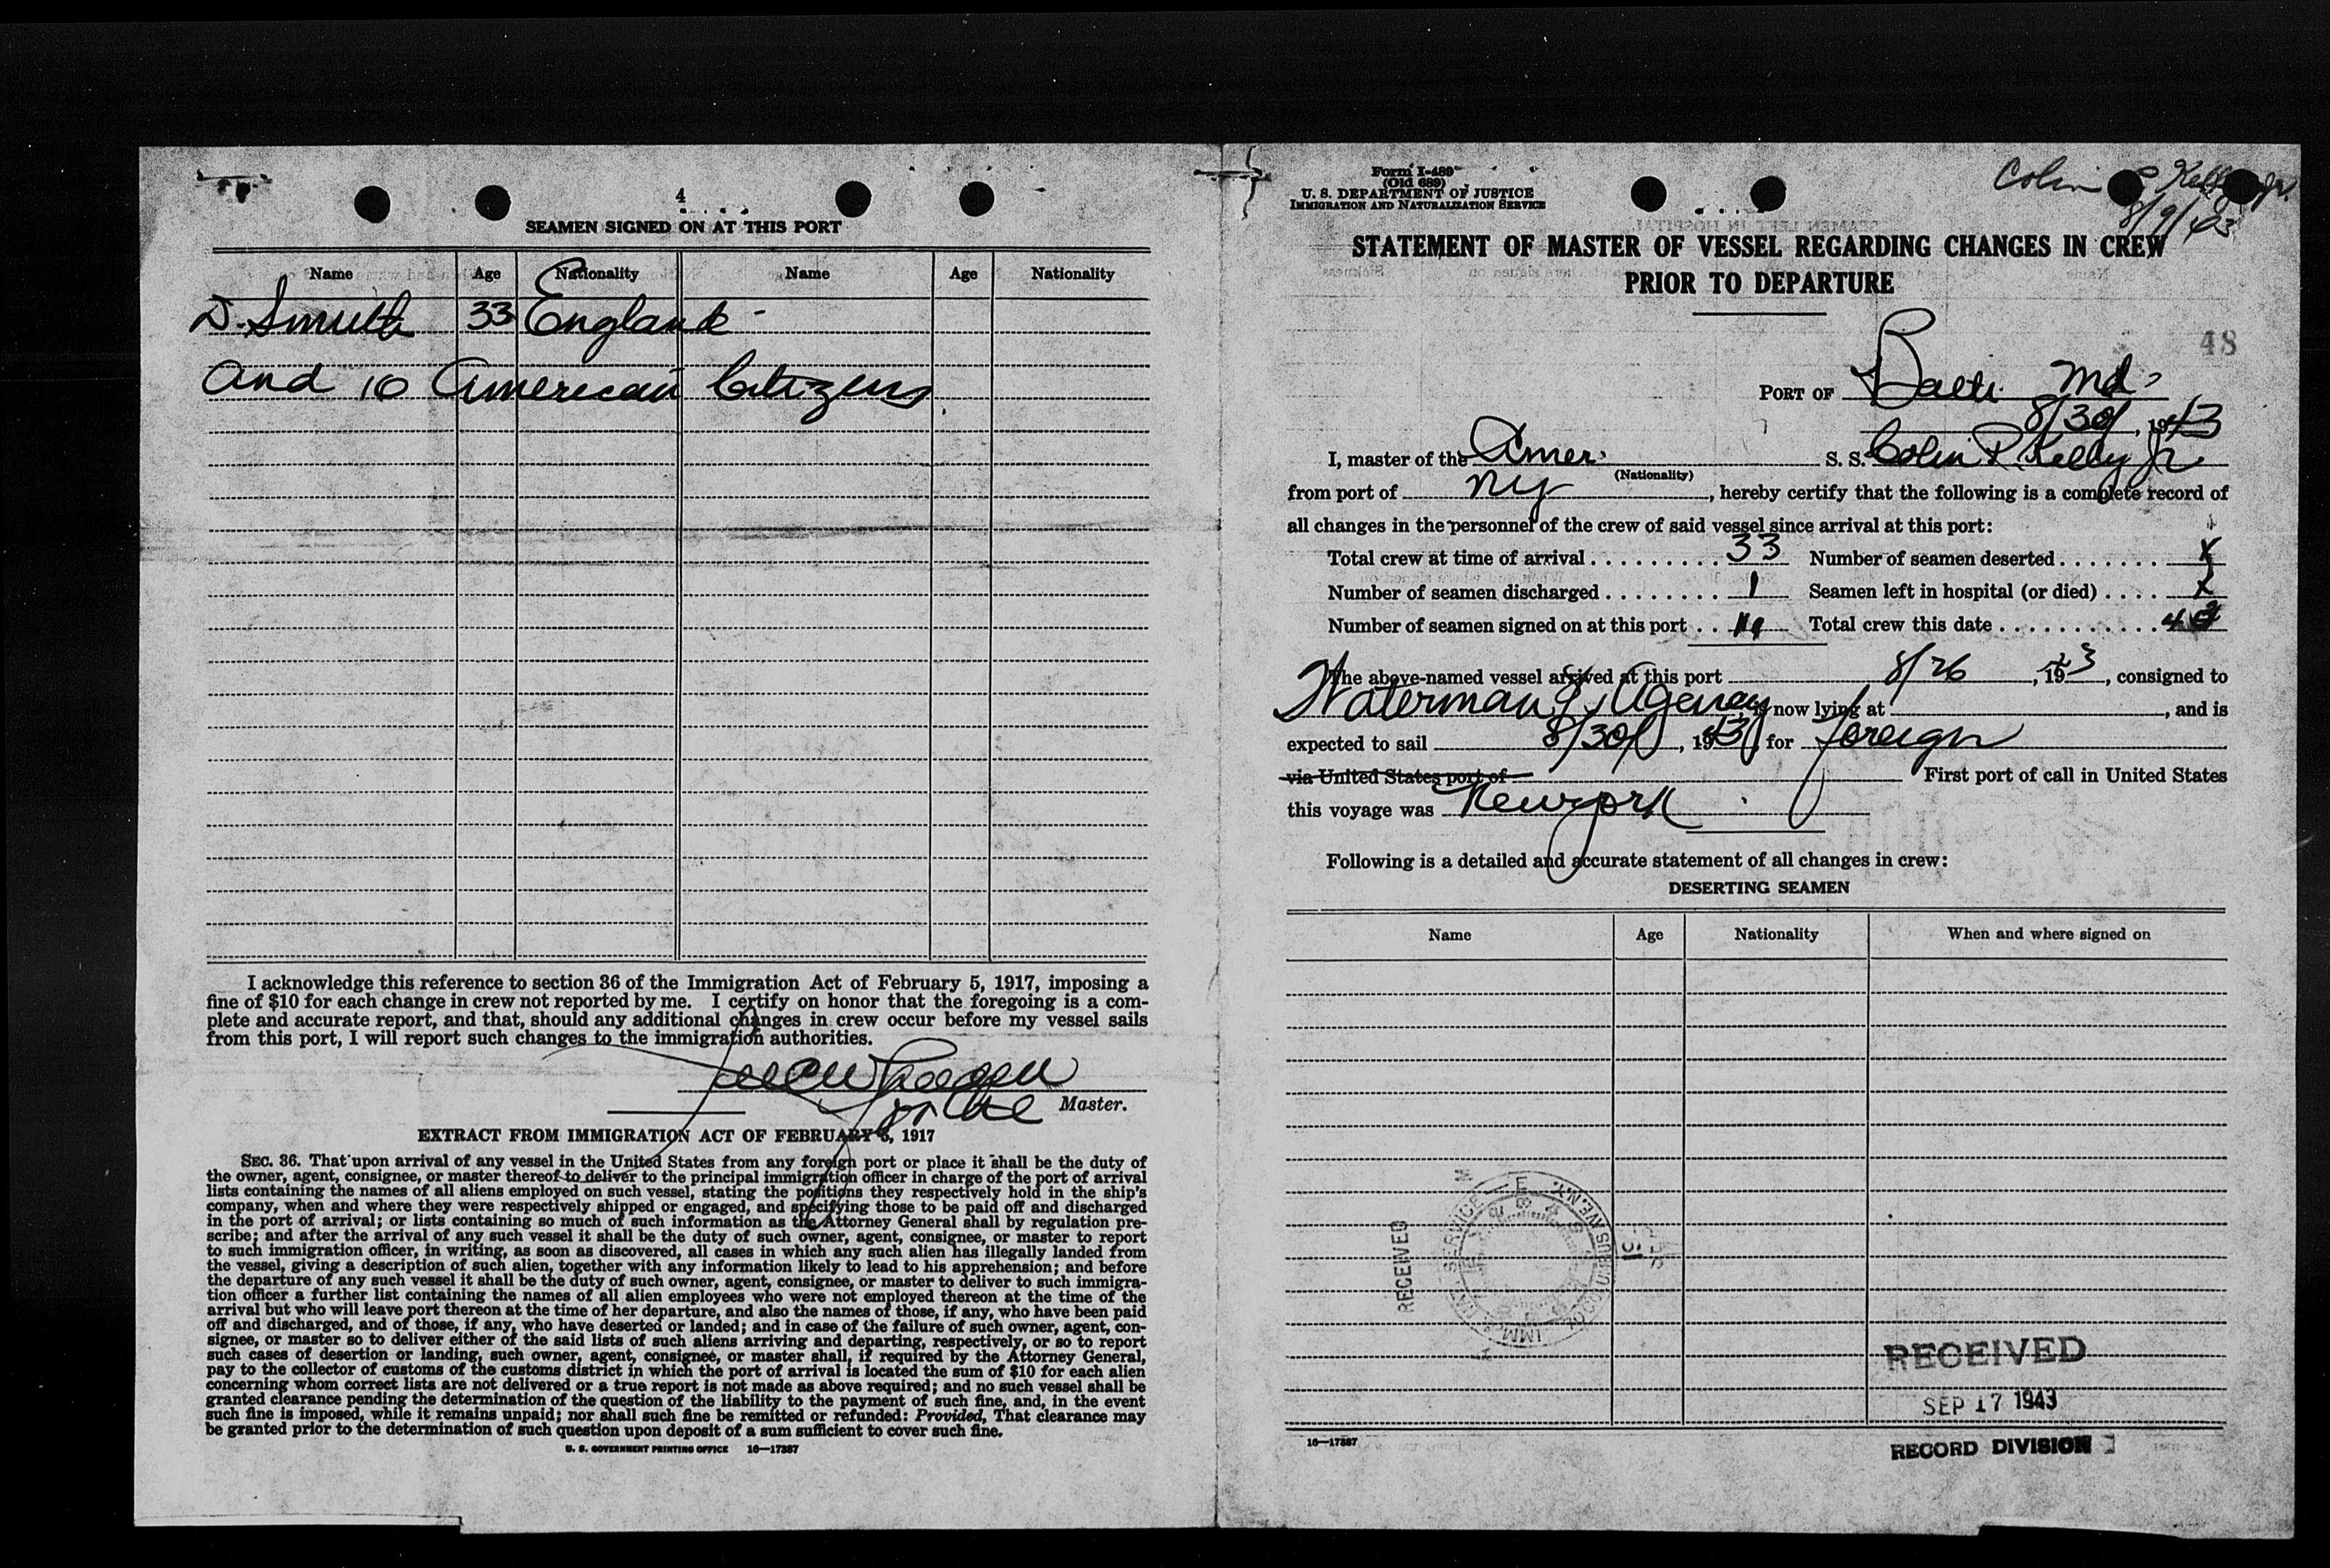 4
SEAMEN SIGNED ON AT THIS PORT
Name Age Nationality Name Age Nationality
D. Smith 33 England -
and 10 American Citizens
I acknowledge this reference to section 36 of the Immigration Act of February 5, 1917, imposing a
fine of $10 for each change in crew not reported by me. I certify on honor that the foregoing is a com-
plete and accurate report, and that, should any additional changes in crew occur before my vessel sails
from this port, I will report such changes to the immigration authorities.
for the Master.
EXTRACT FROM IMMIGRATION ACT OF FEBRUARY 5, 1917
SEC. 36. That upon arrival of any vessel in the United States from any foreign port or place it shall be the duty of
the owner, agent, consignee, or master thereof to deliver to the principal immigration officer in charge of the port of arrival
lists containing the names of all aliens employed on such vessel, stating the positions they respectively hold in the ship's
company, when and where they were respectively shipped or engaged, and specifying those to be paid off and discharged
in the port of arrival; or lists containing so much of such information as the Attorney General shall by regulation pre-
scribe; and after the arrival of any such vessel it shall be the duty of such owner, agent, consignee, or master to report
to such immigration officer, in writing, as soon as discovered, all cases in which any such alien has illegally landed from
the vessel, giving a description of such alien, together with any information likely to lead to his apprehension; and before
the departure of any such vessel it shall be the duty of such owner, agent, consignee, or master to deliver to such immigra-
tion officer a further list containing the names of all alien employees who were not employed thereon at the time of the
arrival but who will leave port thereon at the time of her departure, and also the names of those, if any, who have been paid
off and discharged, and of those, if any, who have deserted or landed; and in case of the failure of such owner, agent, con-
signee, or master so to deliver either of the said lists of such aliens arriving and departing, respectively, or so to report
such cases of desertion or landing, such owner, agent, consignee, or master shall, if required by the Attorney General,
pay to the collector of customs of the customs district in which the port of arrival is located the sum of $10 for each alien
concerning whom correct lists are not delivered or a true report is not made as above required; and no such vessel shall be
granted clearance pending the determination of the question of the liability to the payment of such fine, and, in the event
such fine is imposed, while it remains unpaid; nor shall such fine be remitted or refunded: Provided, That clearance may
be granted prior to the determination of such question upon deposit of a sum sufficient to cover such fine.
U. S. GOVERNMENT PRINTING OFFICE 16—17387
Form I-489
(Old 689)
U. S. DEPARTMENT OF JUSTICE
IMMIGRATION AND NATURALIZATION SERVICE
Colin P Kelly Jr.
8/9/43
STATEMENT OF MASTER OF VESSEL REGARDING CHANGES IN CREW
PRIOR TO DEPARTURE
48
PORT OF Balti Md.
8/30/, 1943
I, master of the Amer. S. S. Colin P. Kelly Jr
(Nationality)
from port of NY, hereby certify that the following is a complete record of
all changes in the personnel of the crew of said vessel since arrival at this port:
Total crew at time of arrival 33 Number of seamen deserted X
Number of seamen discharged 1 Seamen left in hospital (or died) X
Number of seamen signed on at this port 11 Total crew this date 43
The above-named vessel arrived at this port 8/26, 1943, consigned to
Waterman S. S. Agency, is now lying at, and is
expected to sail 8/30/, 1943, for foreign
via United States port of First port of call in United States
this voyage was New york
Following is a detailed and accurate statement of all changes in crew:
DESERTING SEAMEN
Name Age Nationality When and where signed on
RECEIVED
RECEIVED
SEP 17 1943
RECORD DIVISION
16—17387